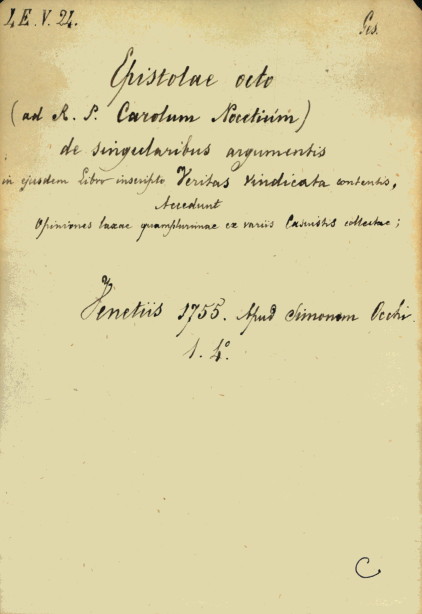 I. E. V. 21. Ges.
Epistolae octo
(ad R. P. Carolum Nocetium)
de singularibus argumentis
in ejusdem Libro inscripto Veritas vindicata contentis,
Accedunt
Opiniones laxae quamplurimae ex variis Casuistis collectae;
Venetiis 1755. Apud Simonem Occhi.
1. 4°.
C